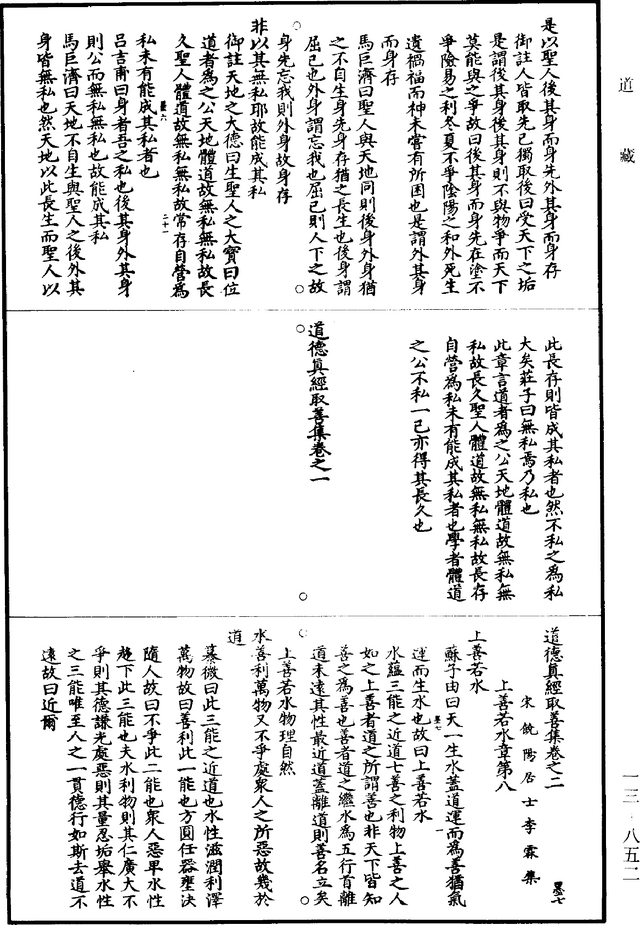 道藏
一三·八五二
是以聖人後其身而身先外其身而身存
御註人皆取先己獨取後曰受天下之垢
是謂後其身後其身則不與物爭而天下
莫能與之爭故曰後其身而身先在塗不
爭險易之利冬夏不爭陰陽之和外死生
遺禍福而神未嘗有所困也是謂外其身
而身存
馬巨濟曰聖人與天地同則後身外身猶
之不自生身先身存猶之長生也後身謂
屈己也外身謂忘我也屈己則人下之故
身先忘我則外身故身存
非以其無私耶故能成其私
御註天地之大德曰生聖人之大寶曰位
道者為之公天地體道故無私無私故長
久聖人體道故無私無私故常存自營為
私未有能成其私者也
墨六 二十一
呂吉甫曰身者吾之私也後其身外其身
則公而無私無私也故能成其私
馬巨濟曰天地不自生與聖人之後外其
身皆無私也然天地以此長生而聖人以
此長存則皆成其私者也然不私之為私
大矣莊子曰無私焉乃私也
此章言道者為之公天地體道故無私無
私故長久聖人體道故無私無私故長存
自營為私未有能成其私者也學者體道
之公不私一己亦得其長久也
道德真經取善集卷之一
道德真經取善集卷之二
墨七
宋饒陽居士李霖集
上善若水章第八
上善若水
蘇子由曰天一生水蓋道運而為善猶氣
運而生水也故曰上善若水
墨七 一
水蘊三能之近道七善之利物上善之人
如之上善者道之所謂善也非天下皆知
善之為善也善者道之繼水為五行首離
道未遠其性最近道蓋離道則善名立矣
上善若水物理自然
水善利萬物又不爭處衆人之所惡故幾於
道
纂微曰此三能之近道也水性滋潤利澤
萬物故曰善利此一能也方圓任器壅決
隨人故曰不爭此二能也衆人惡卑水性
趨下此三能也夫水利物則其仁廣大不
爭則其德謙光處惡則其量忍垢舉水性
之三能唯至人之一貫德行如斯去道不
遠故曰近爾